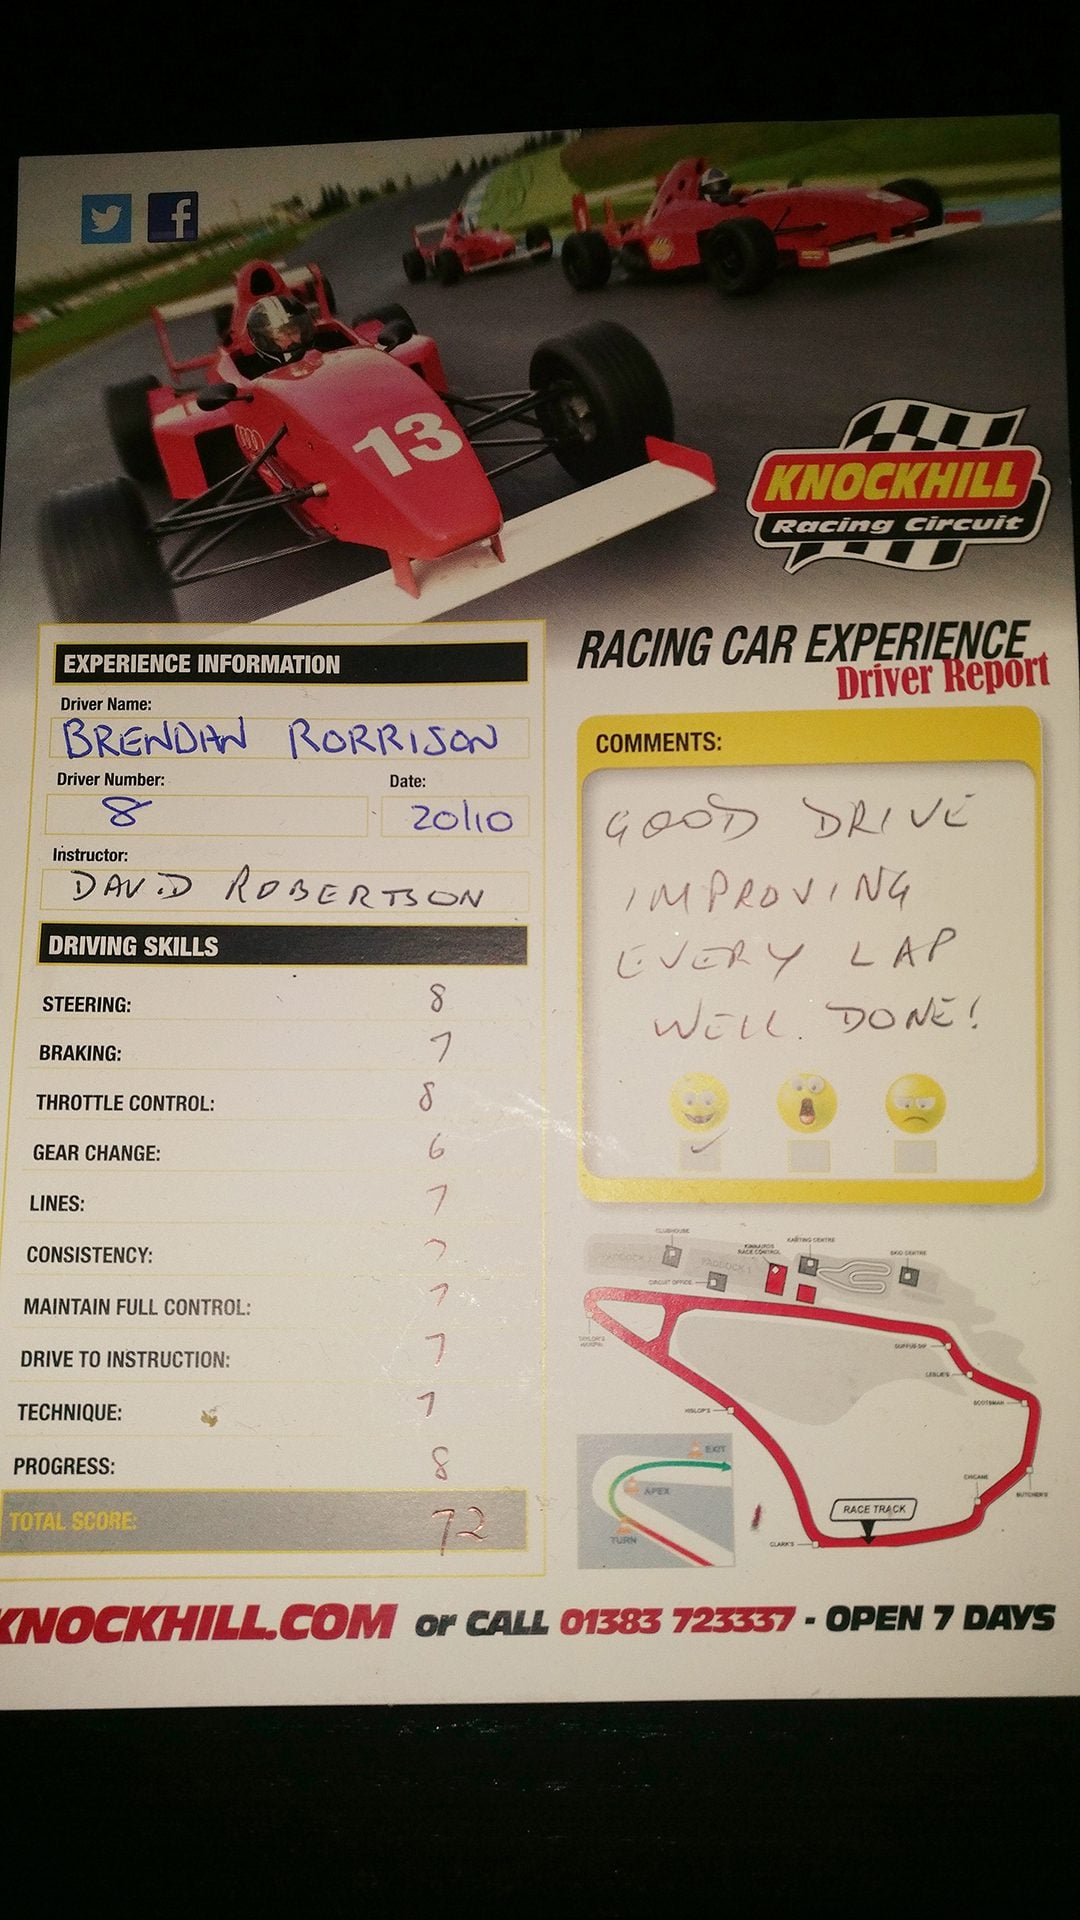 13
KNOCKHILL
Racing Circuit
RACING CAR EXPERIENCE
Driver Report
EXPERIENCE INFORMATION
Driver Name:
BRENDAN RORRISON
Driver Number:
8
Date:
20/10
Instructor:
DAVID ROBERTSON
DRIVING SKILLS
STEERING: 8
BRAKING: 7
THROTTLE CONTROL: 8
GEAR CHANGE: 6
LINES: 7
CONSISTENCY: 7
MAINTAIN FULL CONTROL: 7
DRIVE TO INSTRUCTION: 7
TECHNIQUE: 7
PROGRESS: 8
TOTAL SCORE: 72
COMMENTS:
GOOD DRIVE
IMPROVING
EVERY LAP
WELL DONE!
CLUBHOUSE
PADDOCK
PADDOCK 1
KINNAIRDS
RACE CONTROL
KARTING CENTRE
SKID CENTRE
CIRCUIT OFFICE
TAYLOR'S
HAIRPIN
DUFFUS DIP
LESLIE'S
SCOTSMAN
HISLOP'S
CHICANE
BUTCHER'S
CLARK'S
RACE TRACK
EXIT
APEX
TURN
KNOCKHILL.COM or CALL 01383 723337 - OPEN 7 DAYS